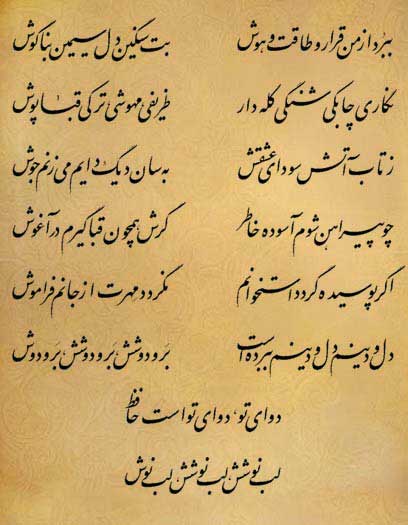 ببرد از من قرار و طاقت و هوش بت سنگین دل سیمین بناگوش
نگاری چابکی شنگی کله دار ظریفی مهوشی ترکی قباپوش
ز تاب آتش سودای عشقش به سان دیگ دایم می زنم جوش
چو پیراهن شوم آسوده خاطر گرش همچون قبا گیرم در آغوش
اگر پوسیده گردد استخوانم نگردد مهرت از جانم فراموش
دل و دینم دل و دینم ببرده است بَر و دوشش بَر و دوشش بَر و دوش
دوای تو، دوای تو است حافظ
لب نوشش لب نوشش لب نوش